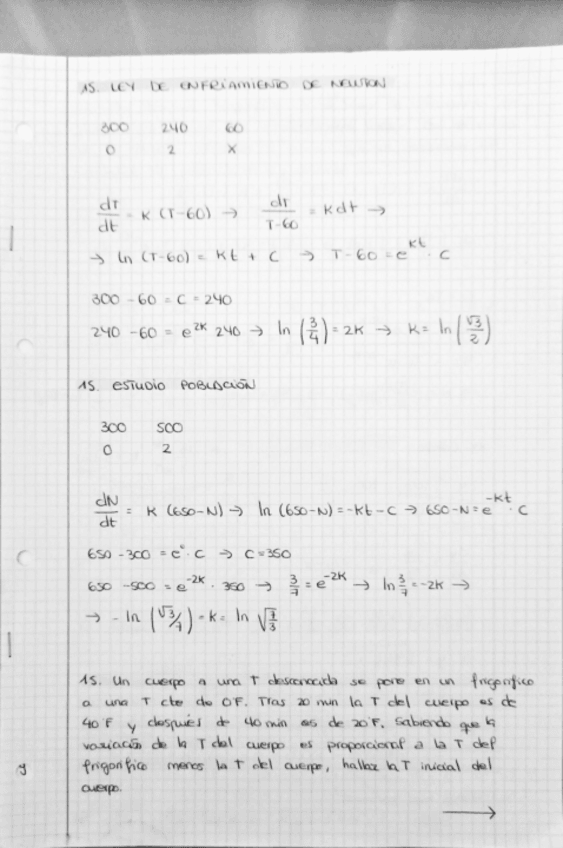 15. LEY DE ENFRIAMIENTO DE NEWTON
300 240 60
0 2 X
dT/dt = K (T-60) → dT/T-60 = K dt →
→ ln (T-60) = Kt + C → T-60 = e^Kt · C
300 - 60 = C = 240
240 - 60 = e^2K 240 → ln (3/4) = 2K → K = ln (√3/2)
15. ESTUDIO POBLACIÓN
300 500
0 2
dN/dt = K (650-N) → ln (650-N) = -Kt - C → 650-N = e^-Kt · C
650 - 300 = e° · C → C = 350
650 - 500 = e^-2K · 350 → 3/7 = e^-2K → ln 3/7 = -2K →
→ - ln (√3/7) = K = ln √7/3
15. Un cuerpo a una T desconocida se pone en un frigorífico
a una T cte de 0F. Tras 20 min la T del cuerpo es de
40°F y después de 40 min es de 20°F. Sabiendo que la
variación de la T del cuerpo es proporcional a la T del
frigorífico menos la T del cuerpo, hallar la T inicial del
cuerpo.
→